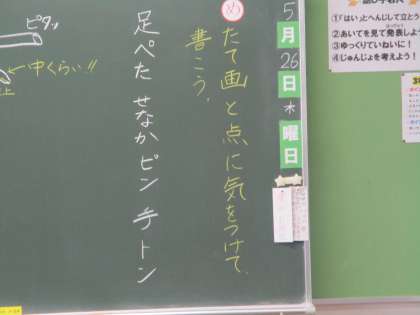 5月26日木曜日
め
たて画と点に気をつけて、
書こう。
足ぺた せなかピン 手トン
ピタッ
←中くらい!!
上
①「はい」とへんじして立とう
②あいてを見て発表しよう
③ゆっくりていねいに!
④じゅんじょを考えよう!